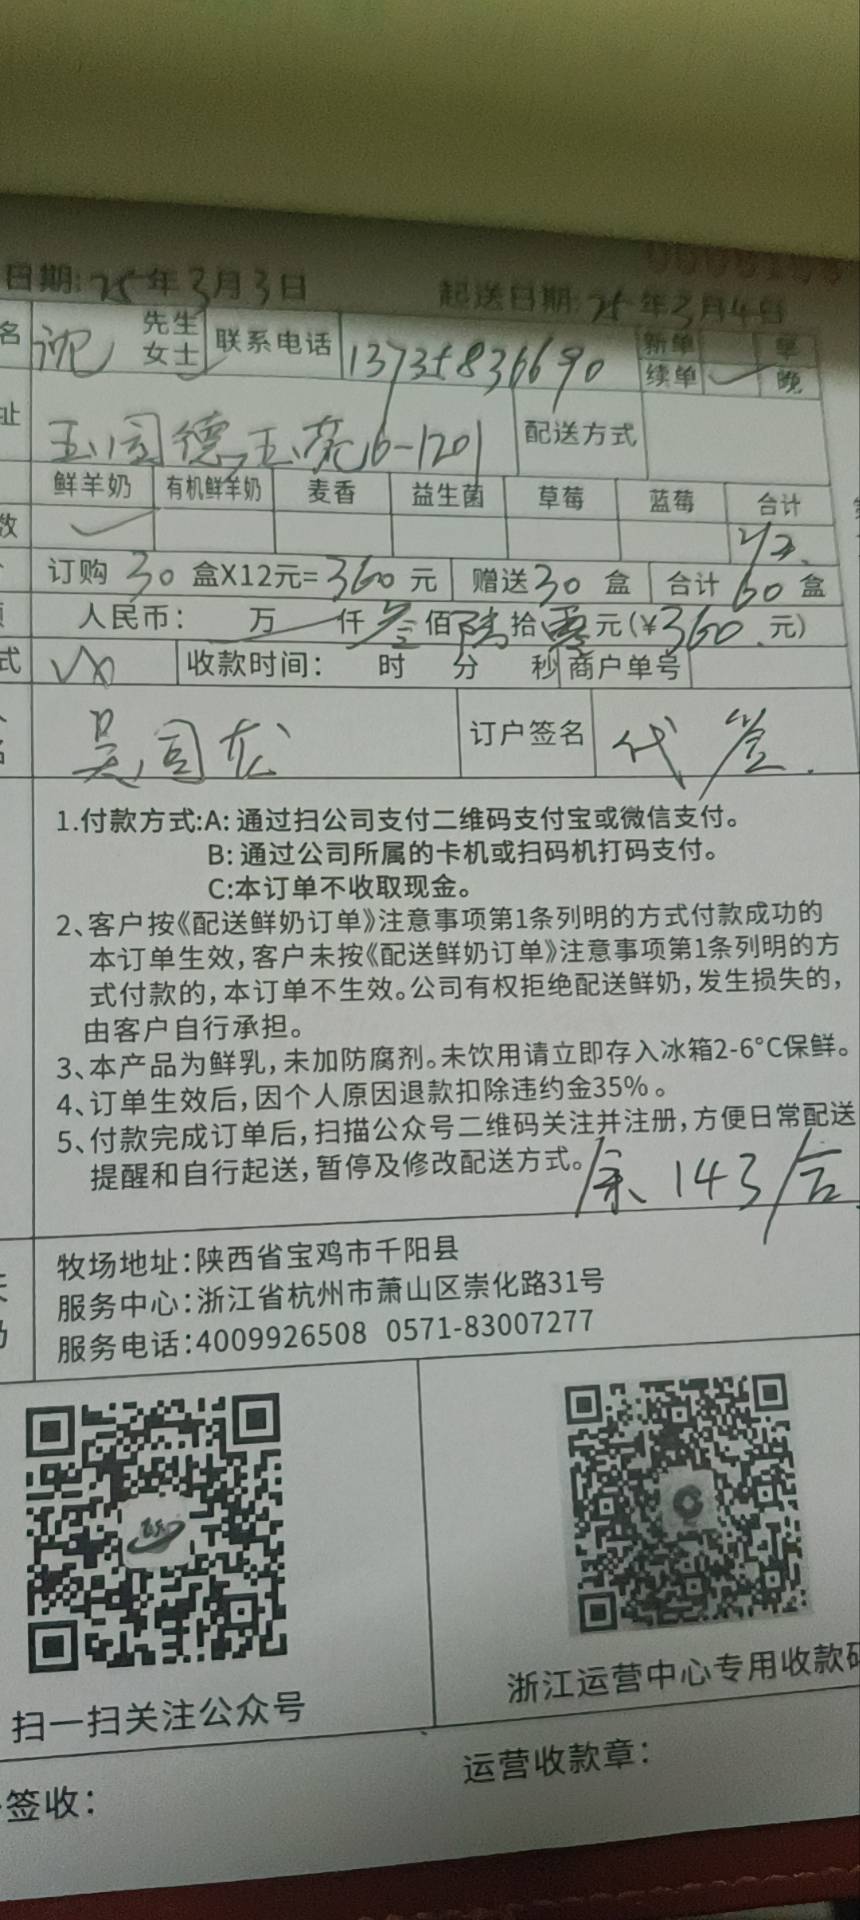 日期:25年3月3日 起送日期:25年3月4日
名 沈 先生 女士 联系电话 新单 早
续单 晚
址 德玉苑6-1201 配送方式
鲜羊奶 有机鲜羊奶 麦香 益生菌 草莓 蓝莓 合计
数
订购 30 盒X12元=360 元 赠送 30 盒 合计 60 盒
人民币: 万 仟 叁 佰 陆 拾 零 元(¥360.元)
式 收款时间: 时 分 秒 商户单号
吴国龙 订户签名 代签.
1.付款方式:A: 通过扫公司支付二维码支付宝或微信支付。
B: 通过公司所属的卡机或扫码机打码支付。
C:本订单不收取现金。
2、客户按《配送鲜奶订单》注意事项第1条列明的方式付款成功的
本订单生效,客户未按《配送鲜奶订单》注意事项第1条列明的方
式付款的,本订单不生效。公司有权拒绝配送鲜奶,发生损失的,
由客户自行承担。
3、本产品为鲜乳,未加防腐剂。未饮用请立即存入冰箱2-6°C保鲜。
4、订单生效后,因个人原因退款扣除违约金35%。
5、付款完成订单后,扫描公众号二维码关注并注册,方便日常配送
提醒和自行起送,暂停及修改配送方式。
余143
牧场地址:陕西省宝鸡市千阳县
服务中心:浙江省杭州市萧山区崇化路31号
服务电话:4009926508 0571-83007277
扫一扫关注公众号
浙江运营中心专用收款码
签收:
运营收款章: